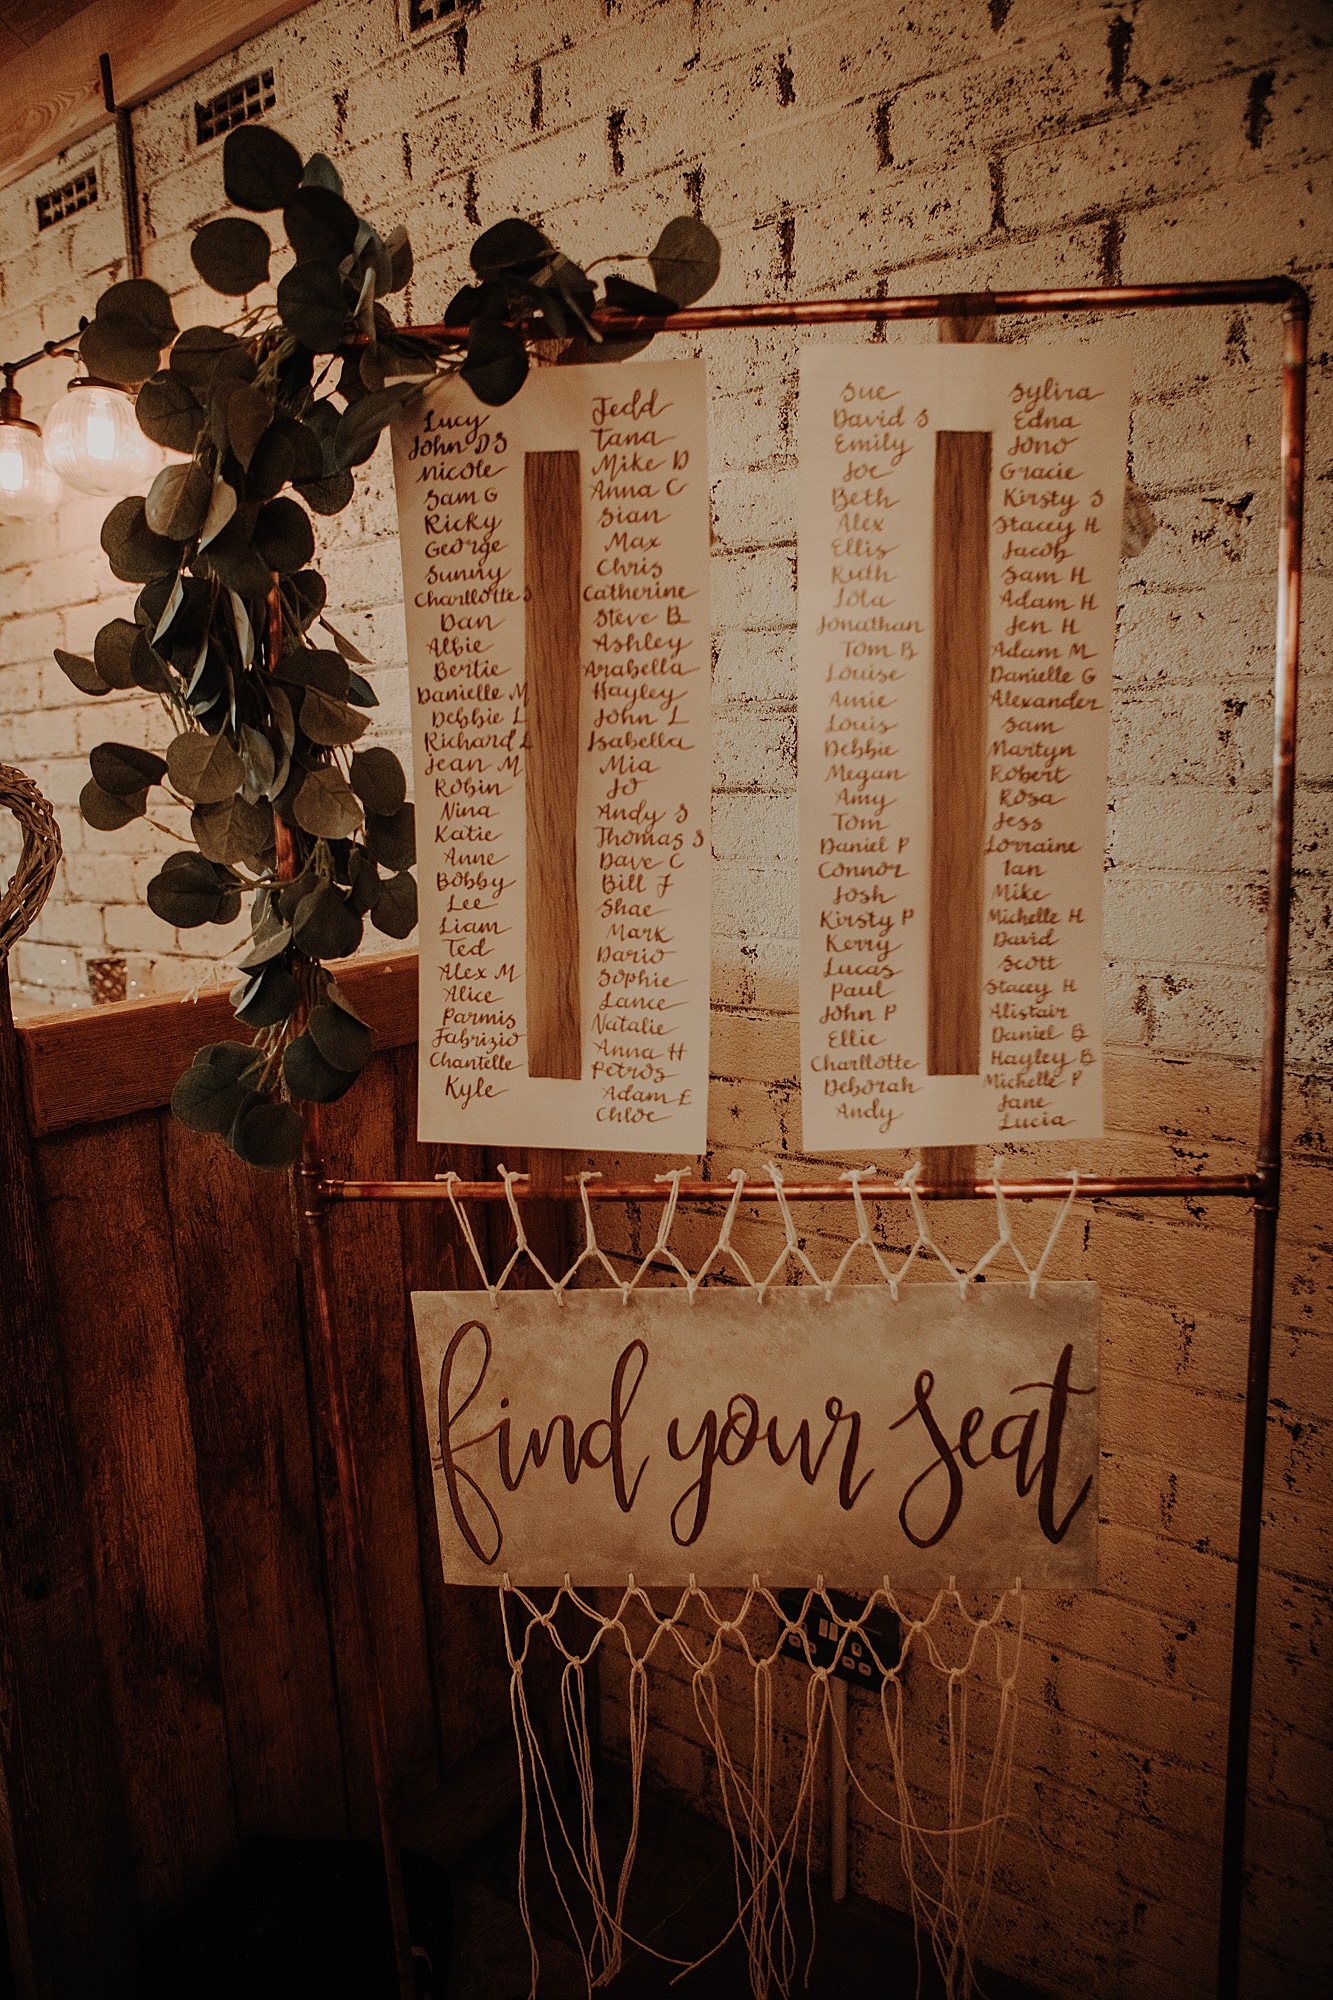 Lucy
John DS
Nicole
Sam G
Ricky
George
Sunny
Charllotte S
Dan
Albie
Bertie
Danielle M
Debbie L
Richard L
Jean M
Robin
Nina
Katie
Anne
Bobby
Lee
Liam
Ted
Alex M
Alice
Parmis
Fabrizio
Chantelle
Kyle
Jedd
Tana
Mike D
Anna C
Sian
Max
Chris
Catherine
Steve B
Ashley
Arabella
Hayley
John L
Isabella
Mia
Jo
Andy S
Thomas S
Dave C
Bill J
Shae
Mark
Dario
Sophie
Lance
Natalie
Anna H
Petros
Adam E
Chloe
Sue
David S
Emily
Joe
Beth
Alex
Ellis
Ruth
Lola
Jonathan
Tom B
Louise
Amie
Louis
Debbie
Megan
Amy
Tom
Daniel P
Connor
Josh
Kirsty P
Kerry
Lucas
Paul
John P
Ellie
Charllotte
Deborah
Andy
Sylvia
Edna
Jono
Gracie
Kirsty S
Stacey H
Jacob
Sam H
Adam H
Jen H
Adam M
Danielle G
Alexander
Sam
Martyn
Robert
Rosa
Jess
Lorraine
Ian
Mike
Michelle H
David
Scott
Stacey H
Alistair
Daniel B
Hayley B
Michelle P
Jane
Lucia
find your seat